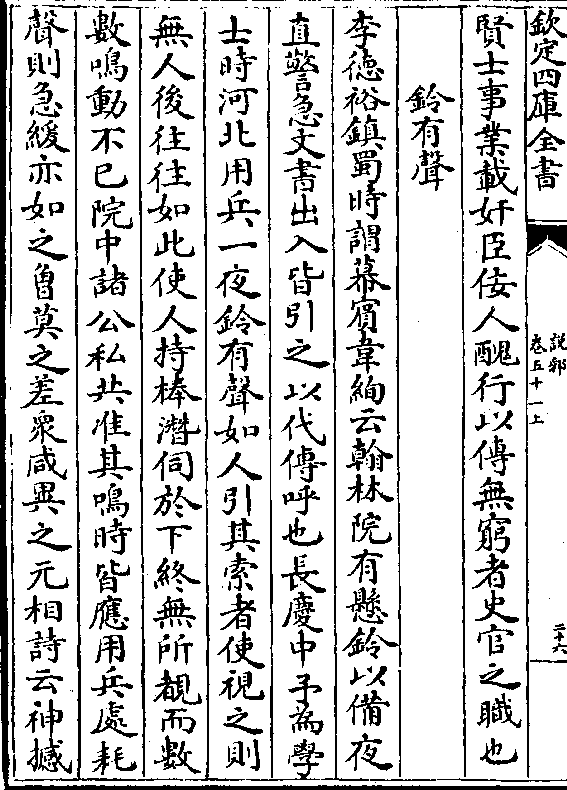 欽定四庫全書
說郛
卷五十一上
二十六
賢士事業載奸臣佞人醜行以傳無窮者史官之職也
鈴有聲
李德裕鎮蜀時謂幕賓韋絢云翰林院有懸鈴以備夜
直警急文書出入皆引之以代傳呼也長慶中予為學
士時河北用兵一夜鈴有聲如人引其索者使視之則
無人後往往如此使人持棒潛伺於下終無所覩而數
數鳴動不已院中諸公私共准其鳴時皆應用兵處耗
聲則急緩亦如之曽莫之差衆咸異之元相詩云神撼